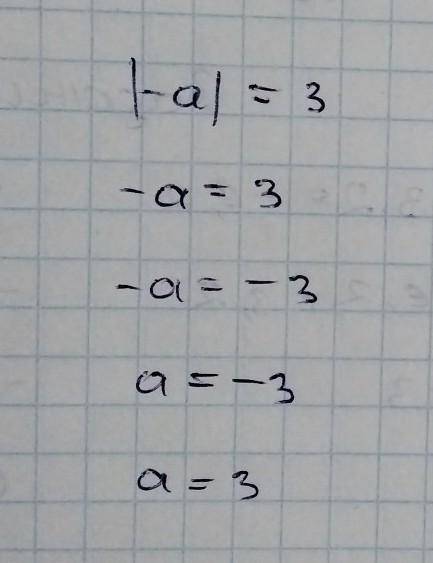 |-a| = 3
-a = 3
-a = -3
a = -3
a = 3